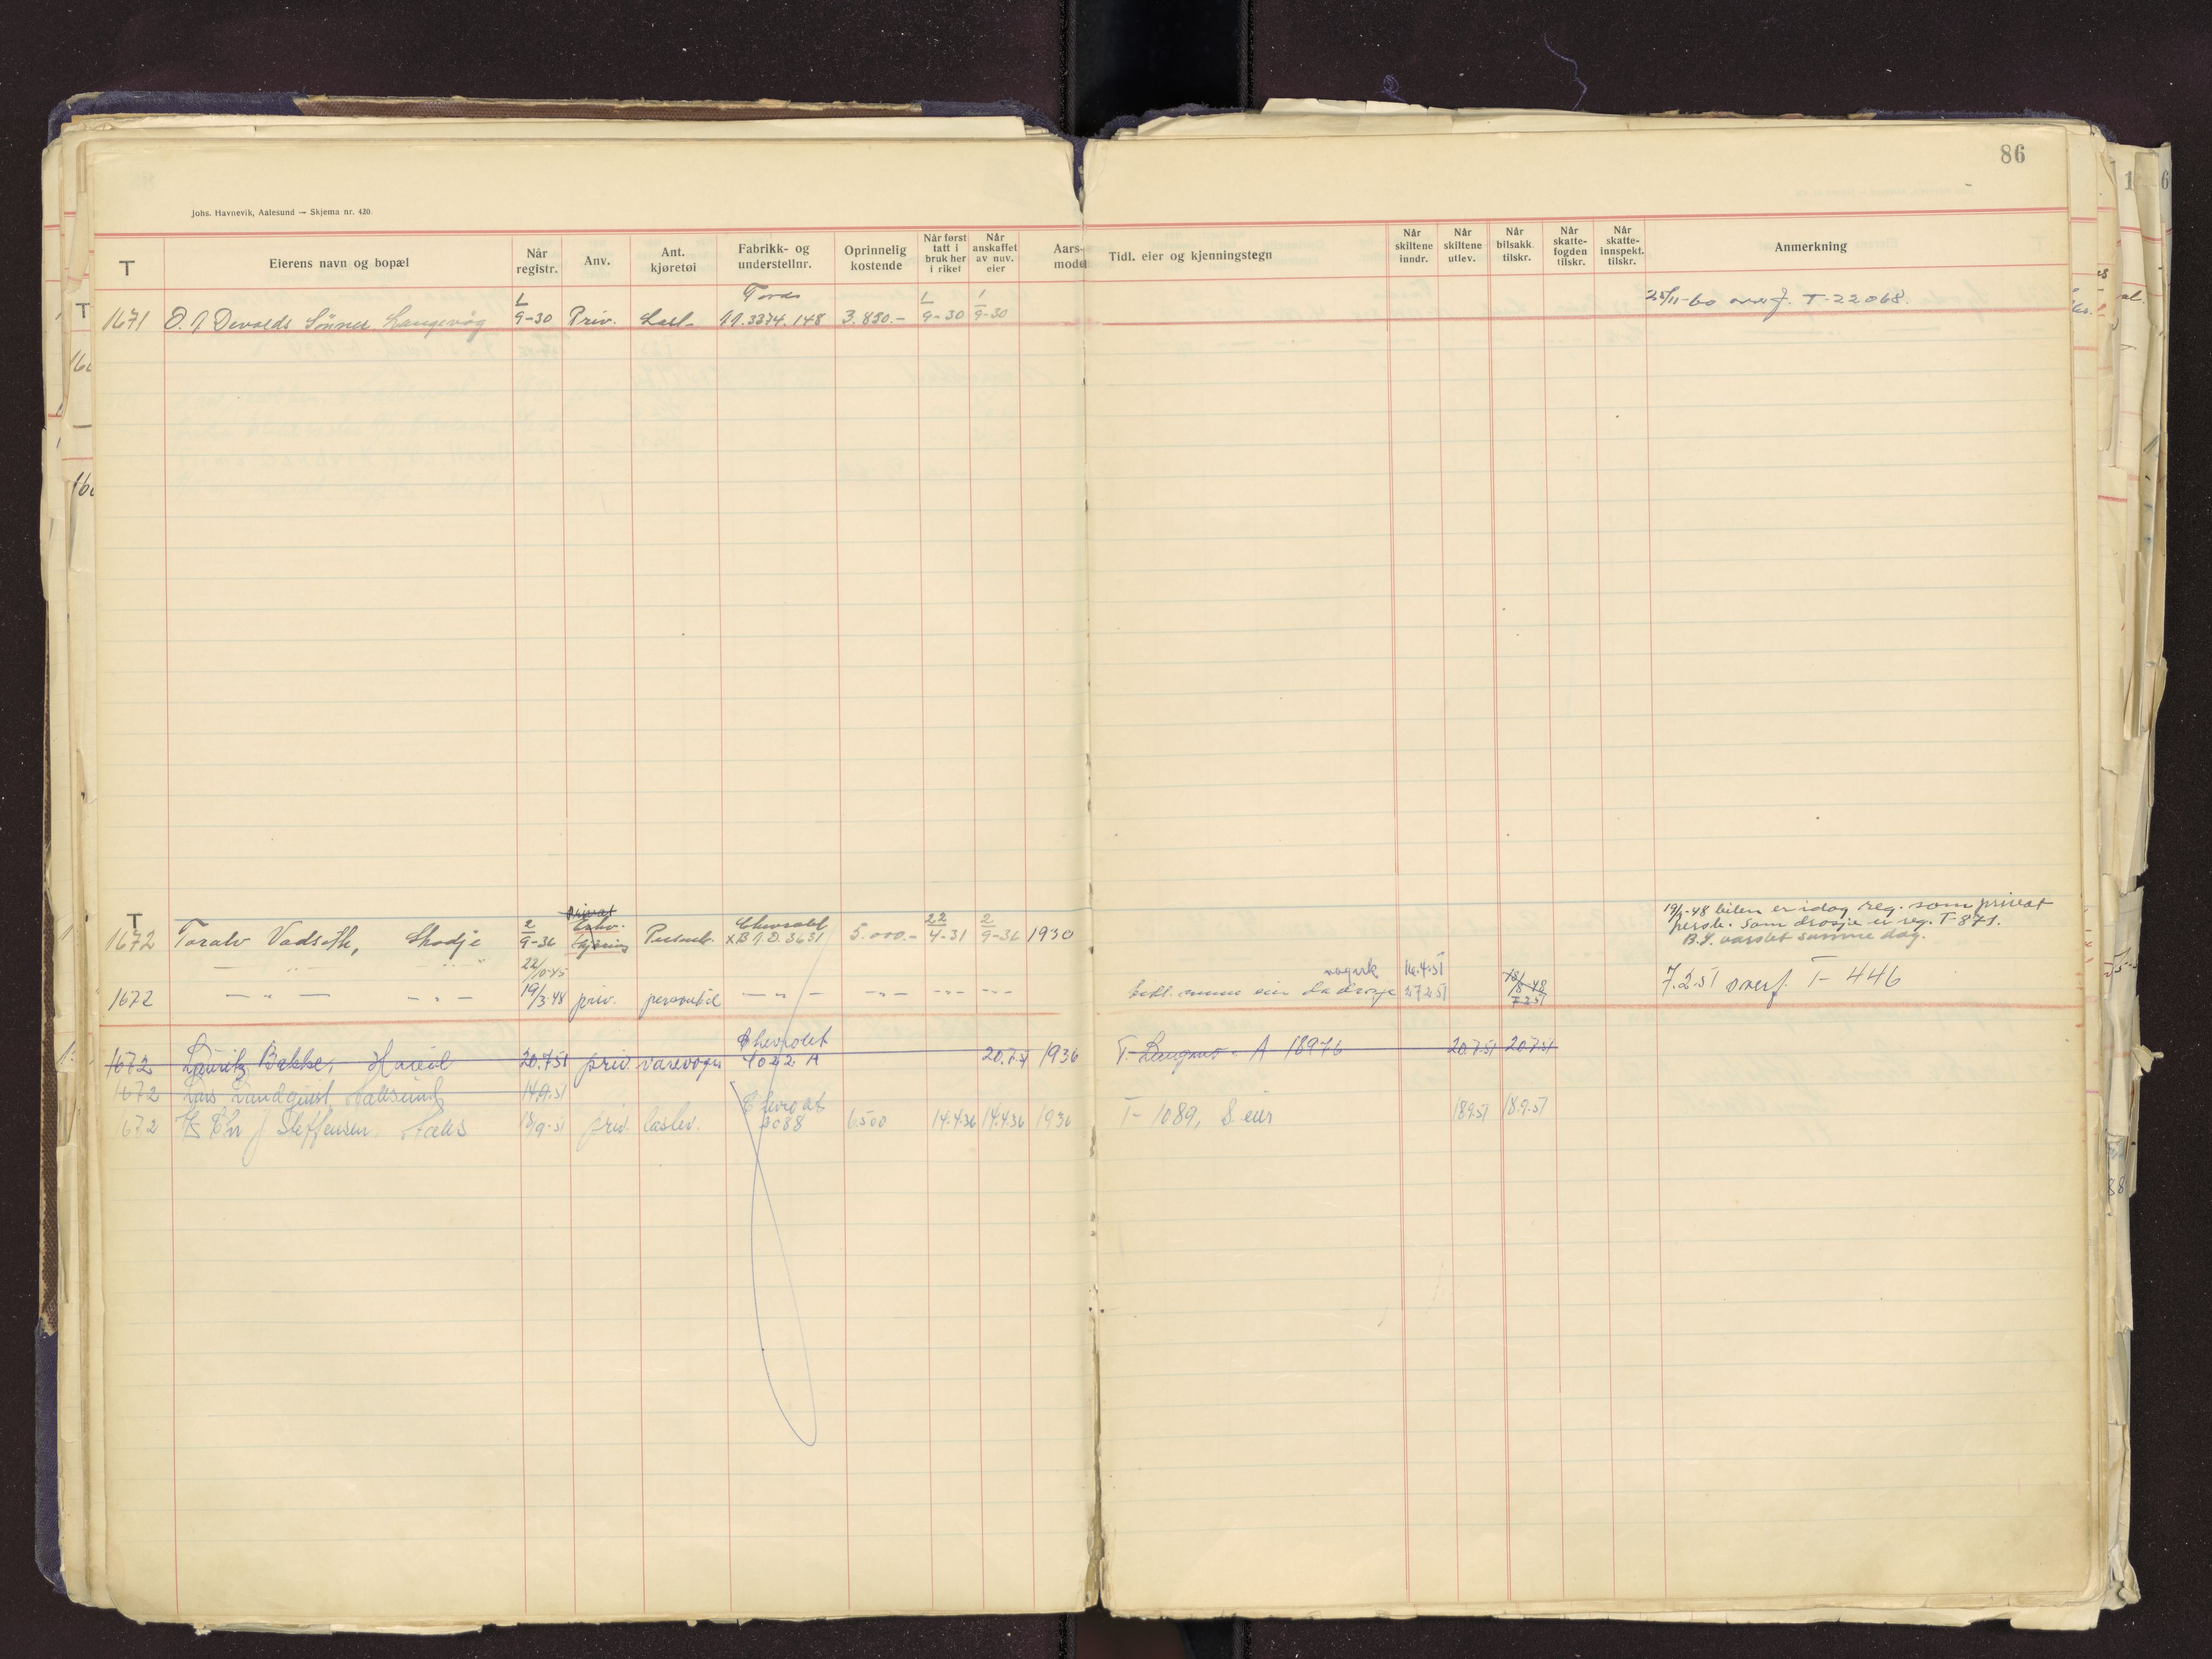 86
Johs. Havnevik, Aalesund — Skjema nr. 420
T Eierens navn og bopæl Når registr. Anv. Ant. kjøretøi Fabrikk- og understellnr. Oprinnelig kostende Når først tatt i bruk her i riket Når anskaffet av nuv. eier Aars- model Tidl. eier og kjenningstegn Når skiltene inndr. Når skiltene utlev. Når bilsakk. tilskr. Når skatte- fogden tilskr. Når skatte- innspekt. tilskr. Anmerkning
1671 O. A Devolds Sønner Langevåg 1/9-30 Priv. Last- Ford AA.3374.148 3.850.- 1/9-30 1/9-30 25/11-60 overf. T-22068.
T
1672 Toralv Vadseth, Skodje 2/9-36 Privat Erhv. kjøring Personb. Chevrolet 5.000.- 22/4-31 2/9-36 1930 19/3-48 bilen er idag reg. som privat
personb. Som drosje er reg. T-871.
B.S. varslet samme dag.
22/10-45
1672 — " — — " — 19/3-48 priv. personbil — " — — " — — " — — " — samme eier da drosje 16.4.51 27.2.51 7.2.51 7.2.51 overf. T-446
1672 Lauritz Bakke, Hareid 20.7.51 priv varevogn Chevrolet 4022 A 20.7.51 1936 A 18976 20.7.51 20.7.51
1672 Lars Landquist Aalesund 14/9.51
1672 A/S Chr J Steffensen. Aales 18/9-51 priv. lastev. Chevrolet 3088 6500 14.4.36 14.4.36 1936 T- 1089, S. eier 18.9.51 18.9.51